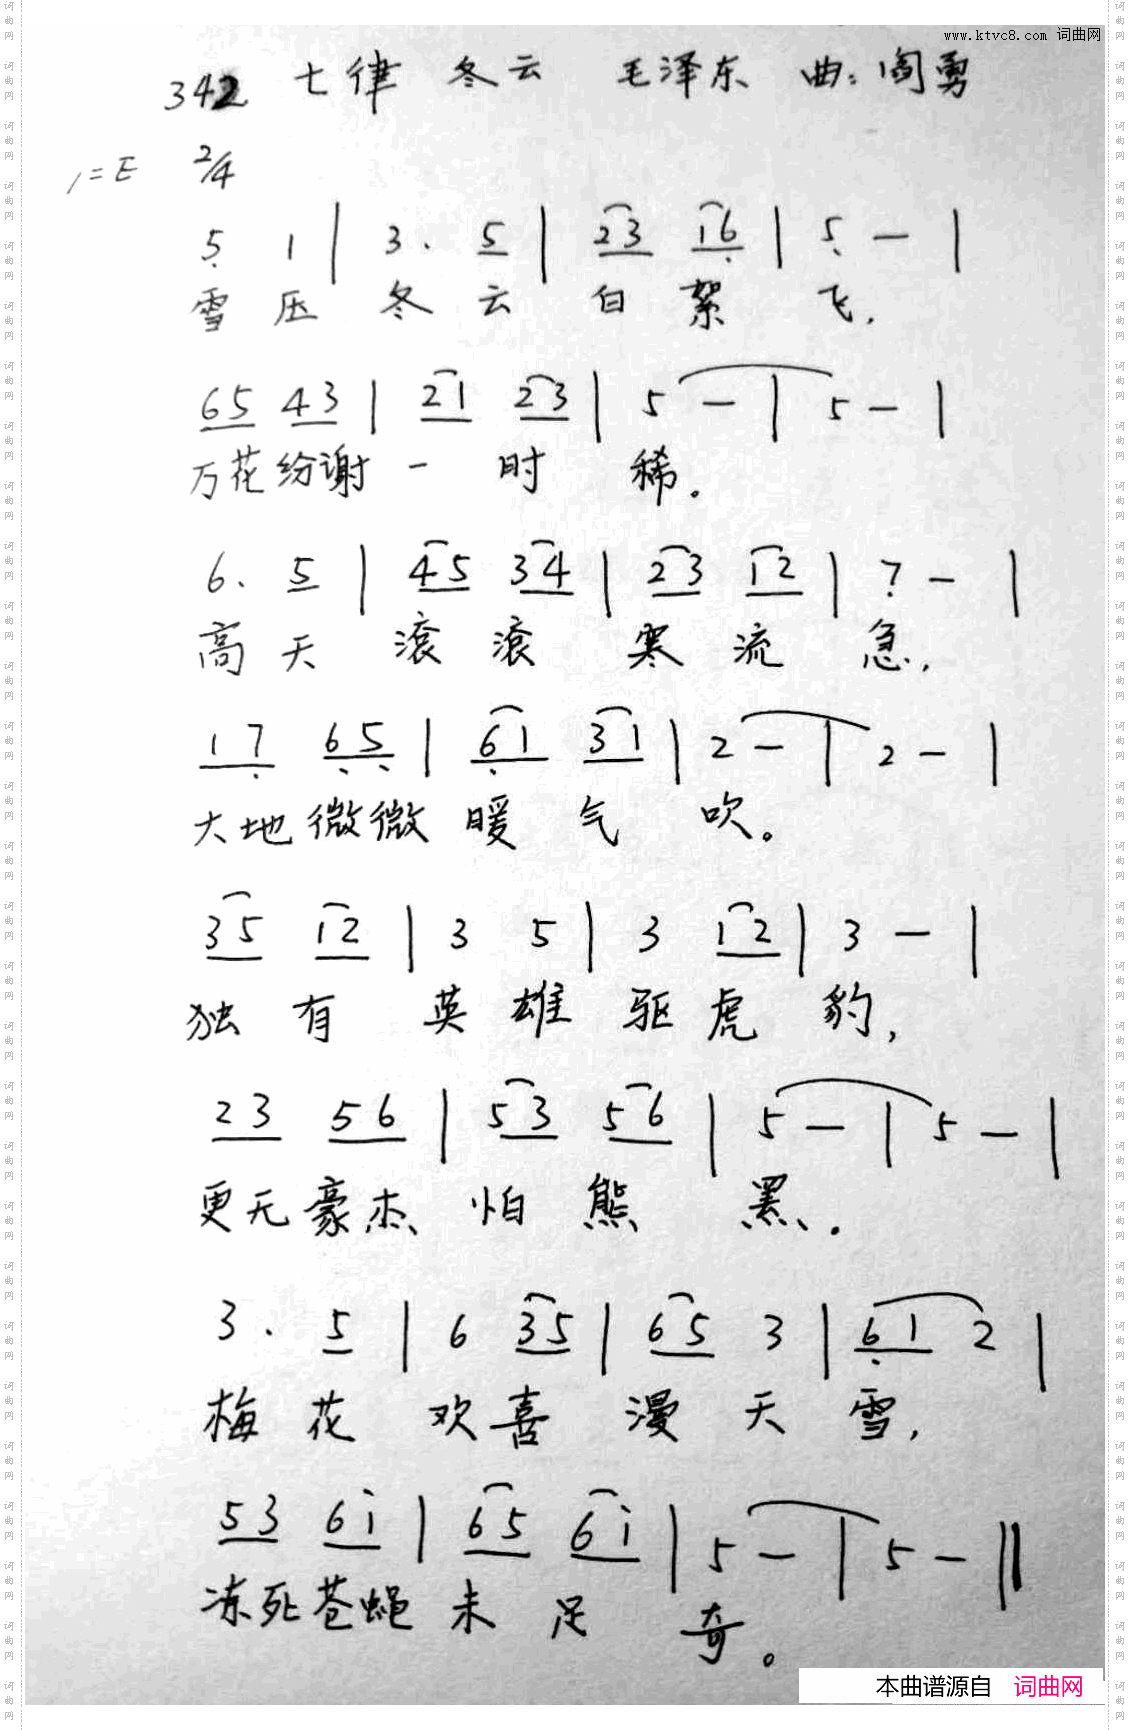 www.ktvc8.com 词曲网
342 七律 冬云 毛泽东 曲:阎勇
1=E 2/4
5̣ 1 | 3. 5 | 23 16̣ | 5̣ — |
雪 压 冬 云 白 絮 飞,
65 43 | 21 23 | 5 — | 5 — |
万花纷谢 一 时 稀。
6. 5 | 45 34 | 23 12 | 7̣ — |
高 天 滚 滚 寒 流 急,
17̣ 6̣5̣ | 6̣1 31 | 2 — | 2 — |
大地微微 暖 气 吹。
35 12 | 3 5 | 3 12 | 3 — |
独 有 英 雄 驱 虎 豹,
23 56 | 53 56 | 5 — | 5 — |
更无豪杰 怕 熊 罴。
3. 5 | 6 35 | 65 3 | 6̣1 2 |
梅 花 欢 喜 漫 天 雪,
53 6i | 65 6i | 5 — | 5 — ‖
冻死苍蝇 未 足 奇。
本曲谱源自 词曲网